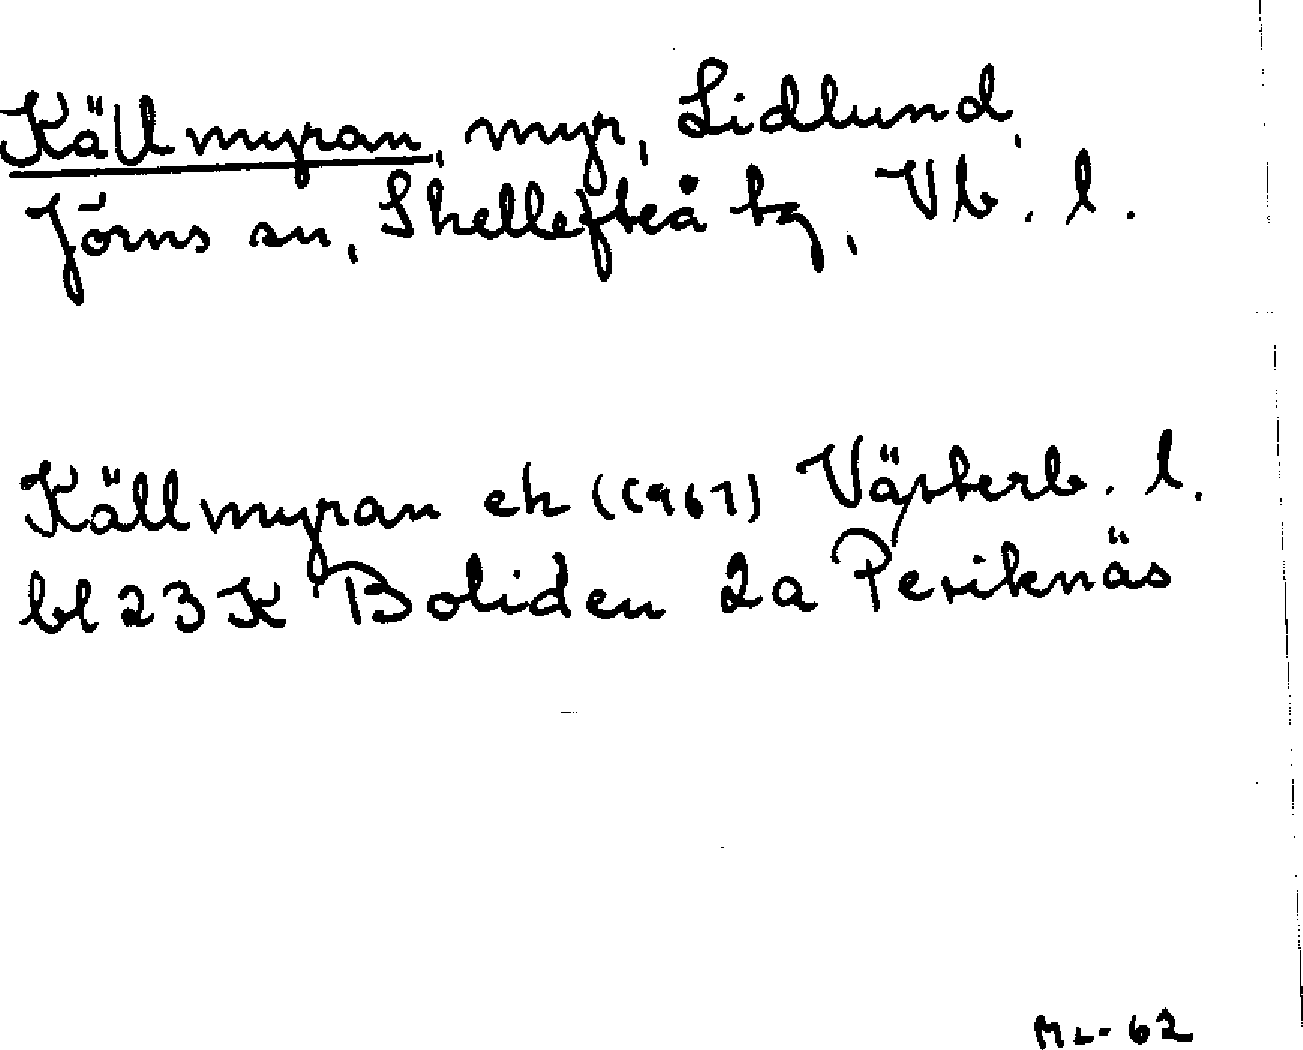 Källmyran, myr, Lidlund,
Jörns sn, Skellefteå tg, Vb. l.
Källmyran ek (1961) Västerb. l.
bl 23 K Boliden 2a Periknäs
ML-62